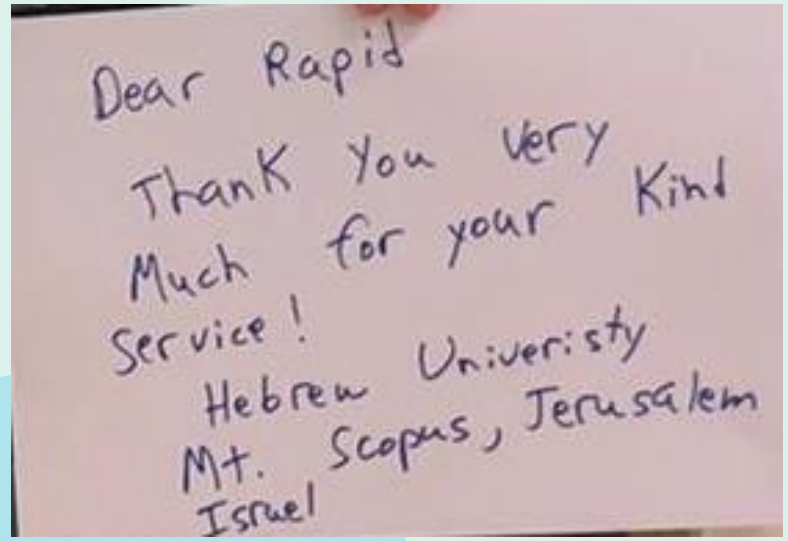 Dear Rapid
Thank You Very
Much for your Kind
Service!
Hebrew Univeristy
Mt. Scopus, Jerusalem
Israel